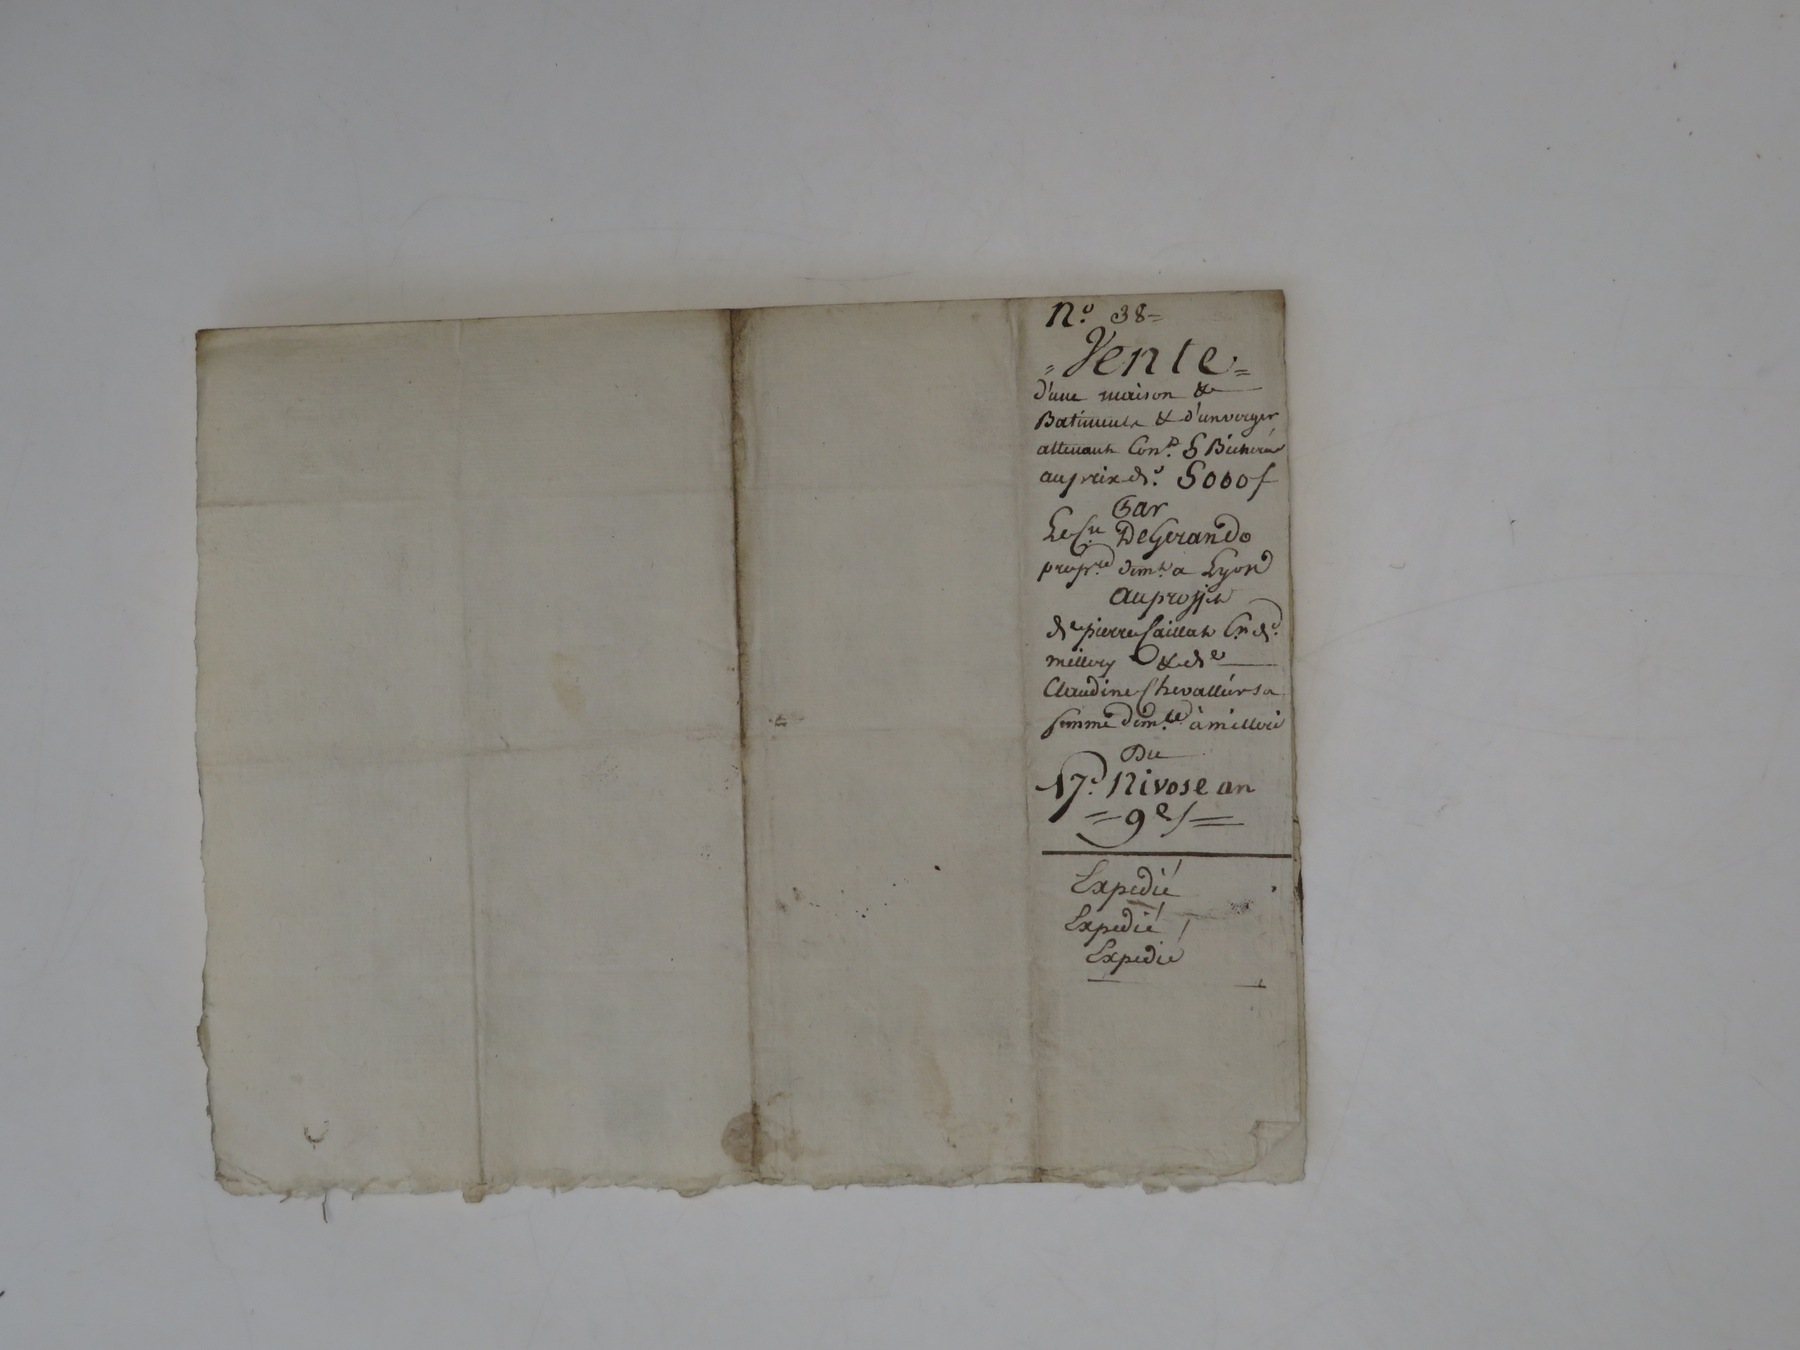 N.o 38=
"Vente"=
d'une maison &
Batiments & d'un verger
attenant Con.t 6 Bicherées
au prix de. 5000 f
Par
Le C.en DeGerando
propr.re dem.t a Lyon
au proffit
de pierre Caillat C.n de
millery & de
Claudine Chevallier sa
femme dem.t à milleri
Du
17.e Nivose an
=9e/=
Expedié
Expedié
Expedié